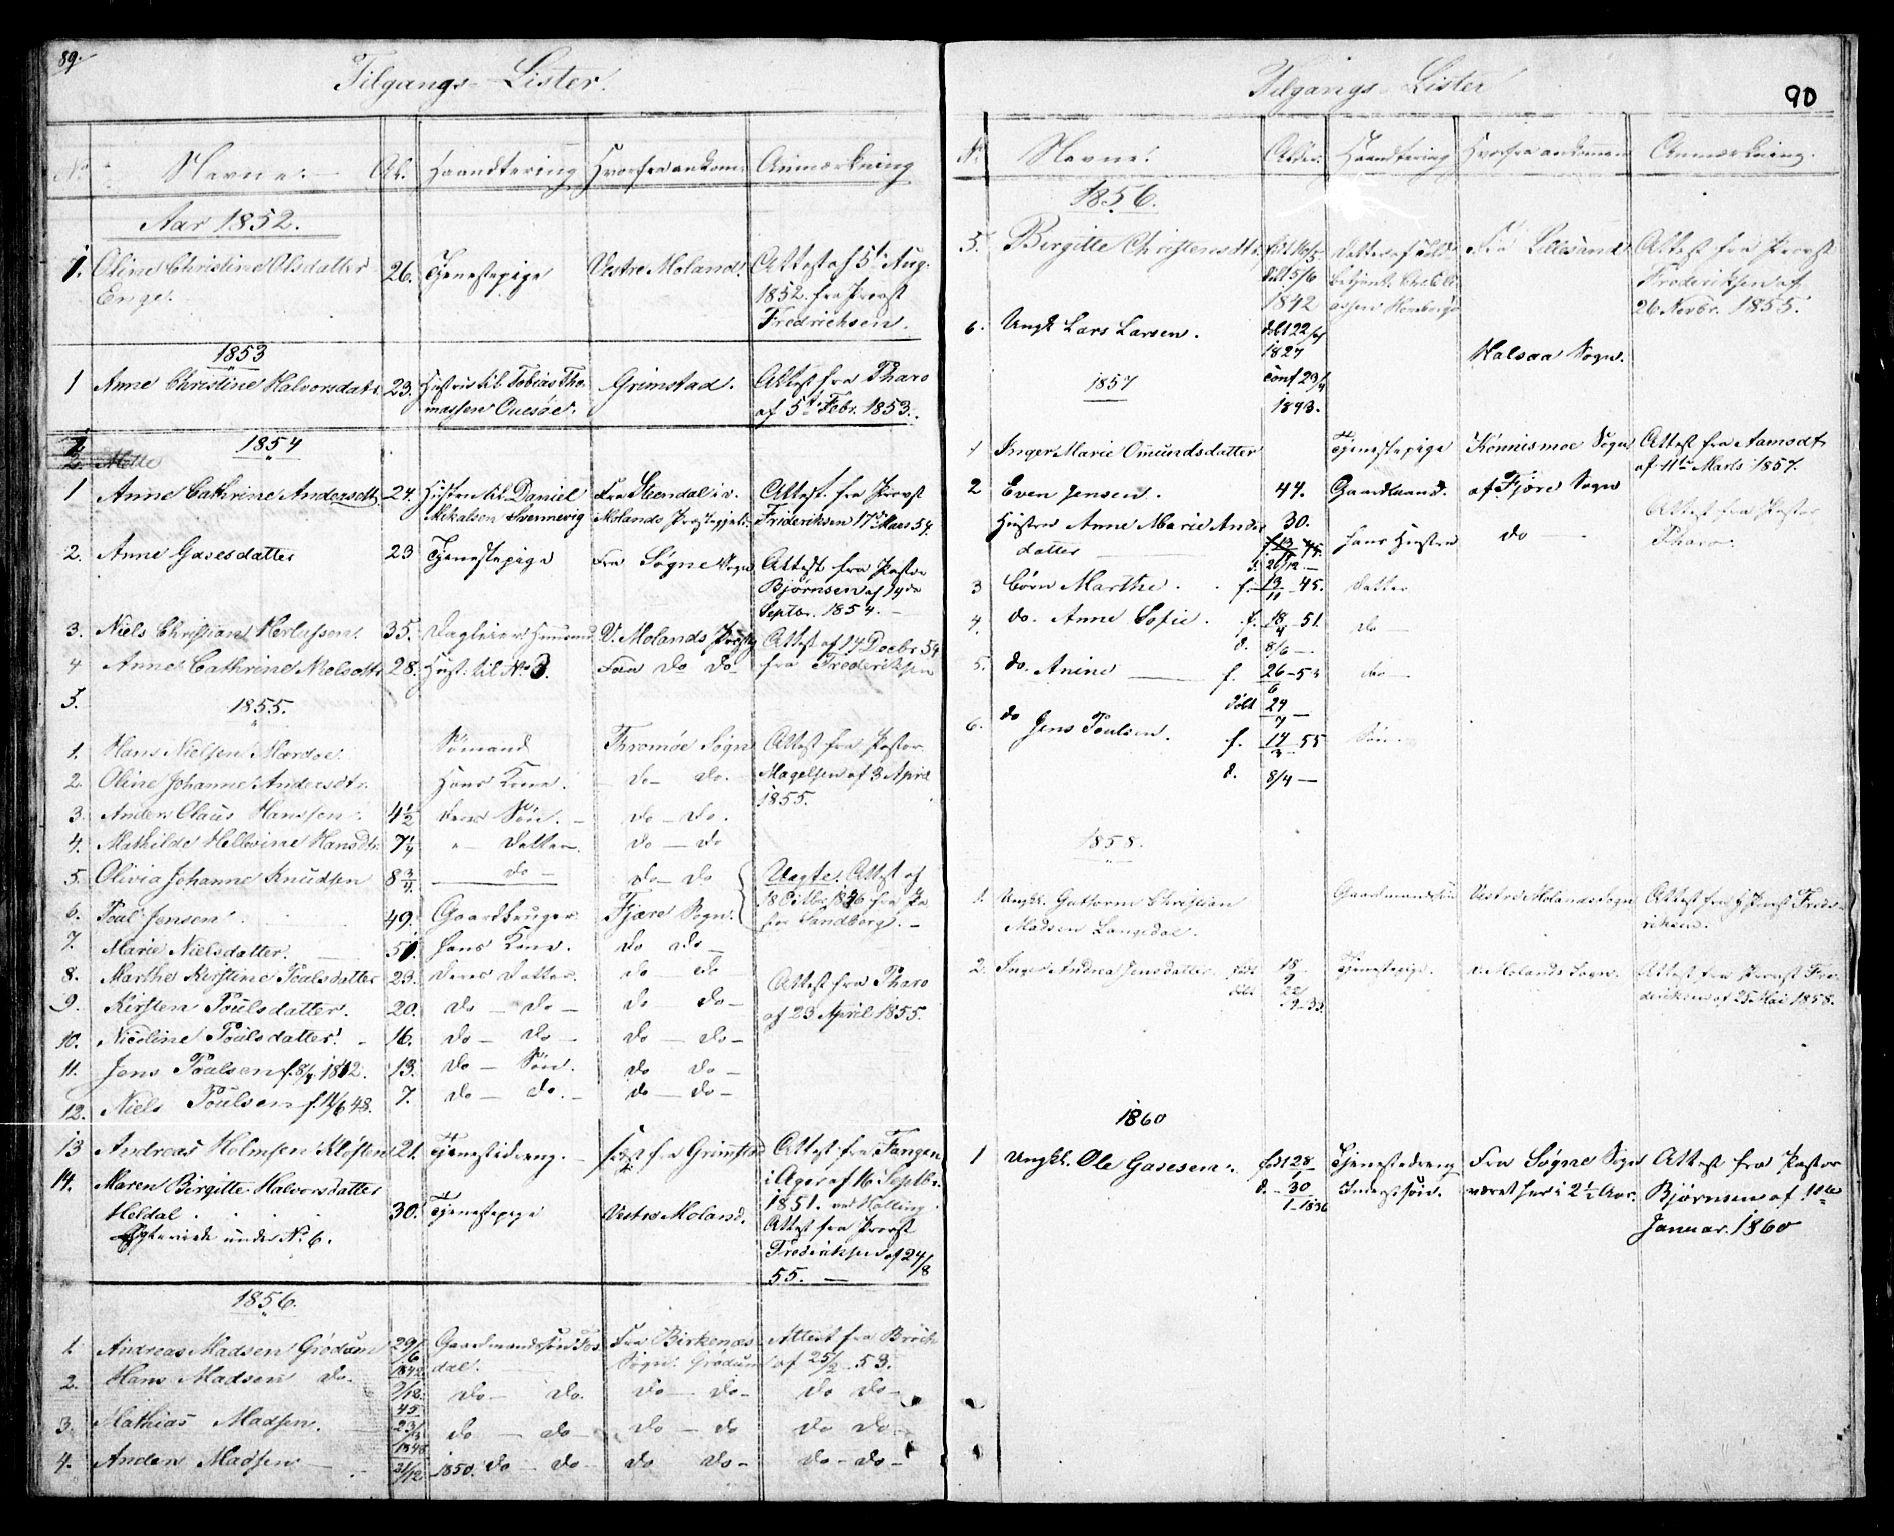 89.
Tilgangs-Lister.
No Navne. Al. Haandtering Hvorfra ankom. Anmærkning
Aar 1852.
1. Oline Christine Olsdatter 26. Tjenestepige Vestre Moland. Attest af 5te Aug.
Enge. 1852 fra Provst
Fredrichsen.
1853
1 Anne Christine Halvorsdatr 23. Hustru til Tobias Tho- Grimstad. Attest fra Tharo
massen af 5te Febr. 1853.
1854
2. Mette
1 Anne Cathrine Andersdtr 24. Hustru til Daniel Fra Steendal i v. Attest fra Provst
Mikalsen Svennevig Molands Præstegjeld Frideriksen 17de Mars 54.
2. Anne Gasesdatter 23 Tjenestepige Fra Søgne Sogn Attest fra Pastor
Bjørnsen af
Septbr. 1854.
3. Niels Christian Herlufsen 35. V. Molands Attest af 14 Decbr 54
4 Anne Cathrine Nielsdtr 28. Hust: til No 3. Fra do do fra Frederiksen
5. 1855.
1. Hans Nielsen Mærdøe Sømand Tromøe Sogn Attest fra Pastor
2. Oline Johanne Andersdtr. Hans Kone. do do. Magelsen af 3 April
1855.
3. Anders Claus Hanssen 4½ deres Søn. do - do.
4. Mathilde Hellevine Hansdtr. 7¼ " Datter do - do
5. Olivia Johanne Knudsen 8¾ do do do Attest af
6. Poul Jensen 49. Gaardbruger Fjære Sogn. Sandberg.
7. Marie Nielsdatter. 51 hans Kone. do do
8. Marthe Kirstine Poulsdatter 23. deres Datter. do do Attest fra Tharo
9. Kirsten Poulsdatter. 20. do do do do af 23 April 1855.
10. Nicoline Poulsdatter 16. do do do do
11. Jens Poulsen f. 1842. 13. do - Søn. do do
12. Niels Poulsen f. 48. 7. do do. do do
13 Andreas Holmsen Kløften 21. Tjenestedreng. fra Grimstad Attest fra Tangen
14. Maren Birgitte Halvorsdatter i Ager af 16 Septbr.
Heldal 30. Tjenestepige Vestre Moland. 1851.
Ægteviede under No 6. Attest fra Provst
Frederiksen af 24/8
55.
1856.
1. Andreas Madsen Grødum 29/6 1842. Gaardmandssøn Fos- Fra Birkenæs Attest fra Broch
dal. Sogn. Grødum af 25/2 53.
2. Hans Madsen do. 2/12. 45 do do. do do do do
3. Mathias Madsen. 23/3 1848 do do do do do do
4. Anders Madsen 21/12 1850. do do do do do do
Tilgangs-Lister
90
No Navne. Alder. Haandtering Hvorfra ankommen Anmærkning.
1856.
5. Birgitte Christensdtr. Datter af Fra Lillesand Attest fra Provst
døbt 5/6 Frederiksen af
1842 26 Novbr. 1855.
6. Ungk. Lars Larsen. døbt 22/ 1827 Halsaa Sogn.
1857 conf 23/4
1843.
1 Inger Marie Omundsdatter Tjenestepige Sogn Attest fra Aamodt
af 11te Marts 1857.
2 Even Jensen. 44. Gaardmand. af Fjøre Sogn Attest fra Pastor
Hustru Anne Marie Anders 30. hans Hustru do Tharo.
datter
d. 26/12
3 børn Marthe f. 13/11 - 45. datter
4. do. Anne Sofie. f. 18/4 - 51. do
d. 8/6
5. do. Anine f. 26/6 - 53 do
døbt 24/7
6. do Jens Poulsen. f. 14/3 - 55 Søn
d. 8/4
1858.
1. Ungk. Guttorm Christian Gaardmandssøn Vestre Molands Sogn Attest fra Provst Frede-
Madsen Langedal. riksen.
2. Inger Andrea Jensdatter Tjenestepige. v. Molands Sogn. Attest fra Provst Fre-
deriksen af 25 Mai 1858.
1860
1 Ungkl. Ole Gasesen født 28/1 Tjenestedreng Fra Søgne Sogn Attest fra Pastor
d. 30/1 1836 været her i 2½ Aar. Bjørnsen af
Januar. 1860